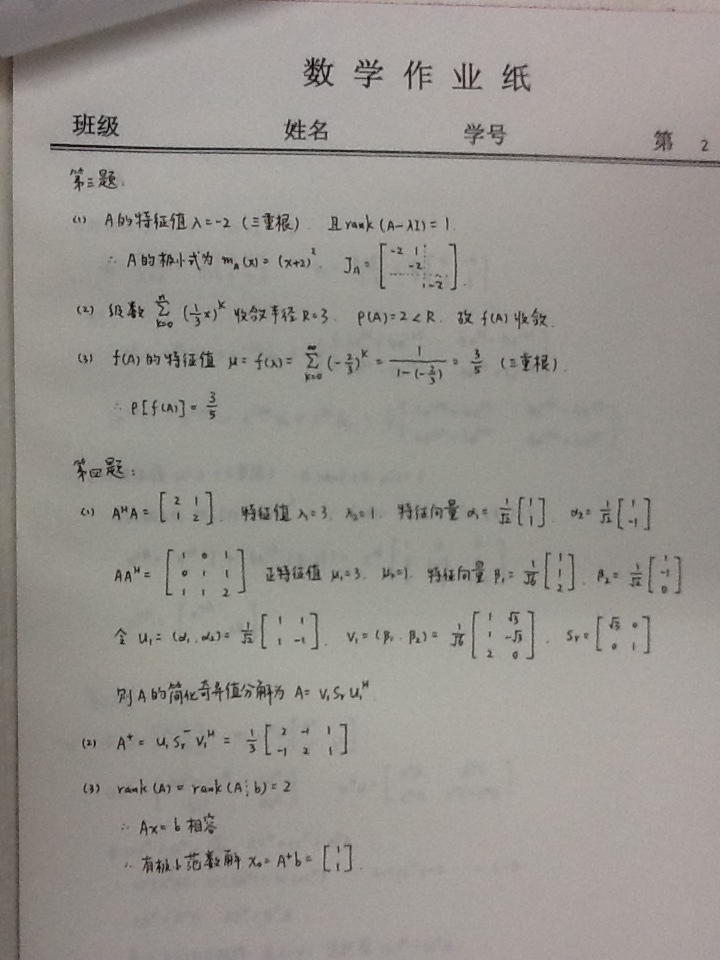 数学作业纸
班级 姓名 学号 第 2
第三题:
(1) A的特征值 λ=-2 (三重根). 且rank(A-λI)=1.
∴ A的极小式为 m_A(x)=(x+2)^2. J_A=[-2 1; -2; -2].
(2) 级数 ∑_{k=0}^{n} (1/3 x)^k 收敛半径 R=3. ρ(A)=2<R. 故 f(A) 收敛.
(3) f(A) 的特征值 μ=f(λ)=∑_{k=0}^{∞} (-2/3)^k = 1/(1-(-2/3)) = 3/5 (三重根).
∴ ρ[f(A)]=3/5
第四题:
(1) A^HA=[2 1; 1 2]. 特征值 λ1=3. λ2=1. 特征向量 α1=1/√2[1; 1]. α2=1/√2[1; -1]
AA^H=[1 0 1; 0 1 1; 1 1 2] 正特征值 μ1=3. μ2=1. 特征向量 β1=1/√6[1; 1; 2]. β2=1/√2[1; -1; 0]
令 U1=(α1, α2)=1/√2[1 1; 1 -1]. V1=(β1, β2)=1/√6[1 √3; 1 -√3; 2 0]. Sr=[√3 0; 0 1]
则 A 的简化奇异值分解为 A=V1SrU1^H
(2) A^+=U1Sr^-V1^H=1/3[2 -1 1; -1 2 1]
(3) rank(A)=rank(A¦b)=2
∴ Ax=b 相容
∴ 有极小范数解 x0=A^+b=[1; 1].